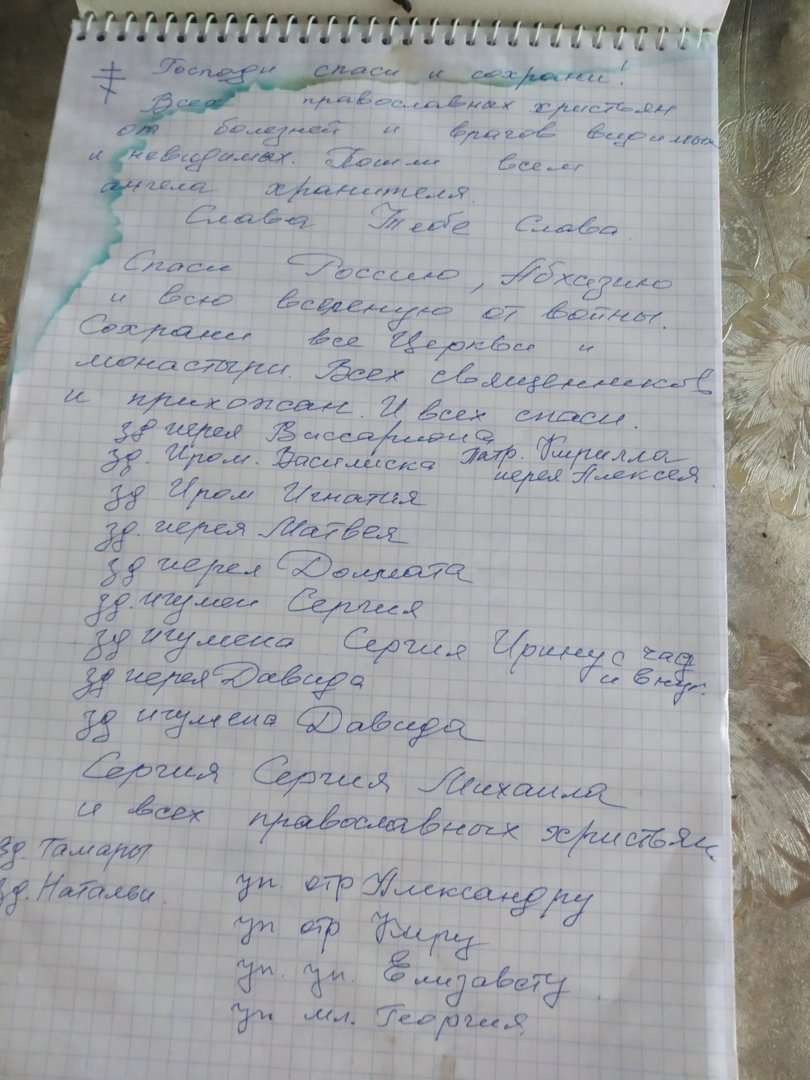 Господи спаси и сохрани!
Всех православных христьян
от болезней и врагов видимых
и невидимых. Пошли всем
ангела хранителя.
Слава Тебе Слава.
Спаси Россию, Абхазию
и всю вселеную от войны.
Сохрани все Церкви и
монастыри. Всех священников
и прихожан. И всех спаси.
зд иерея Виссариона
зд. Иром. Василиска Патр. Кирилла
иерея Алексея.
зд Иром Игнатия
зд. иерея Матвея
зд иерея Долмата
зд. игумен Сергия
зд игумена Сергия Ирину с чад
и внук.
зд иерея Давида
зд игумена Давида
Сергия Сергия Михаила
и всех православных христьян
зд. Тамары
зд. Натальи.
уп. отр Александру
уп отр Киру
уп. уп. Елизавету
уп мл. Георгия